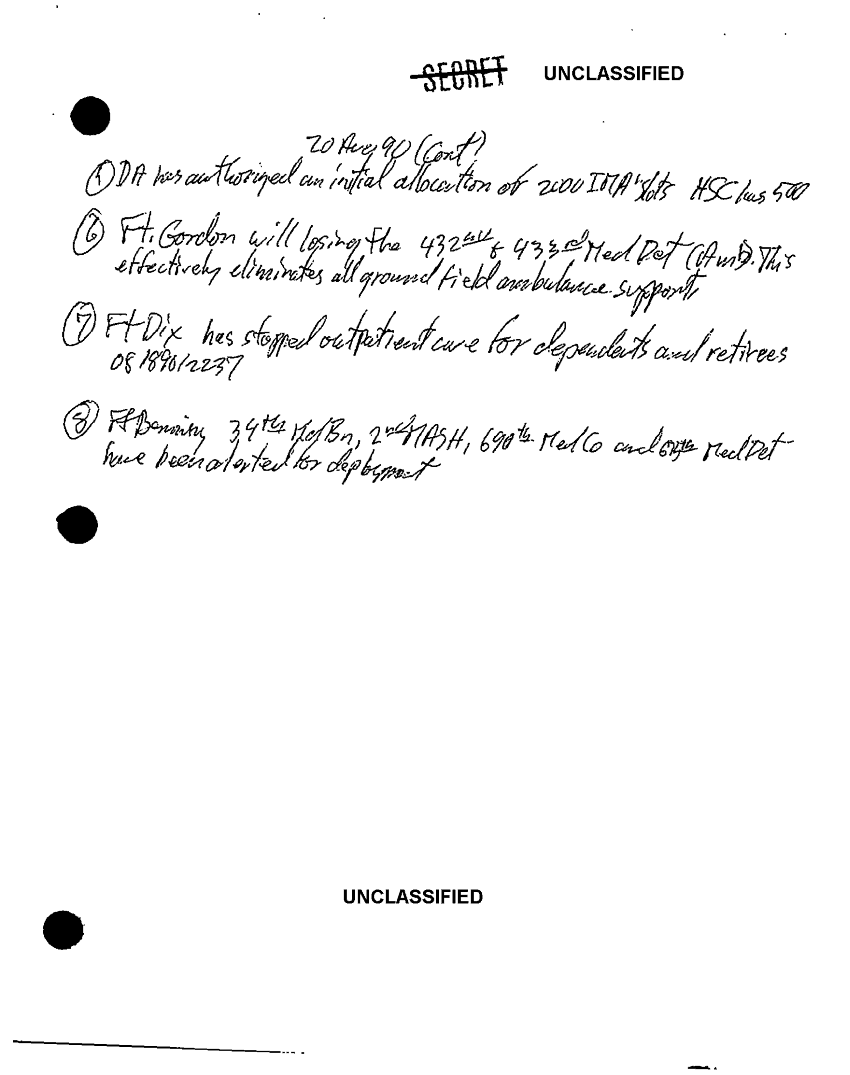 SECRET UNCLASSIFIED
20 Aug 90 (Cont)
⑤ DA has authorized an initial allocation of 2000 IMA slots HSC has 500
⑥ Ft. Gordon will losing the 432nd & 433rd Med Det (Amb). This
effectively eliminates all ground field ambulance support.
⑦ Ft Dix has stopped outpatient care for dependents and retirees
081890/2237
⑧ Ft Benning 34th Med Bn, 2nd MASH, 690th Med Co and Med Det
have been alerted for deployment
UNCLASSIFIED